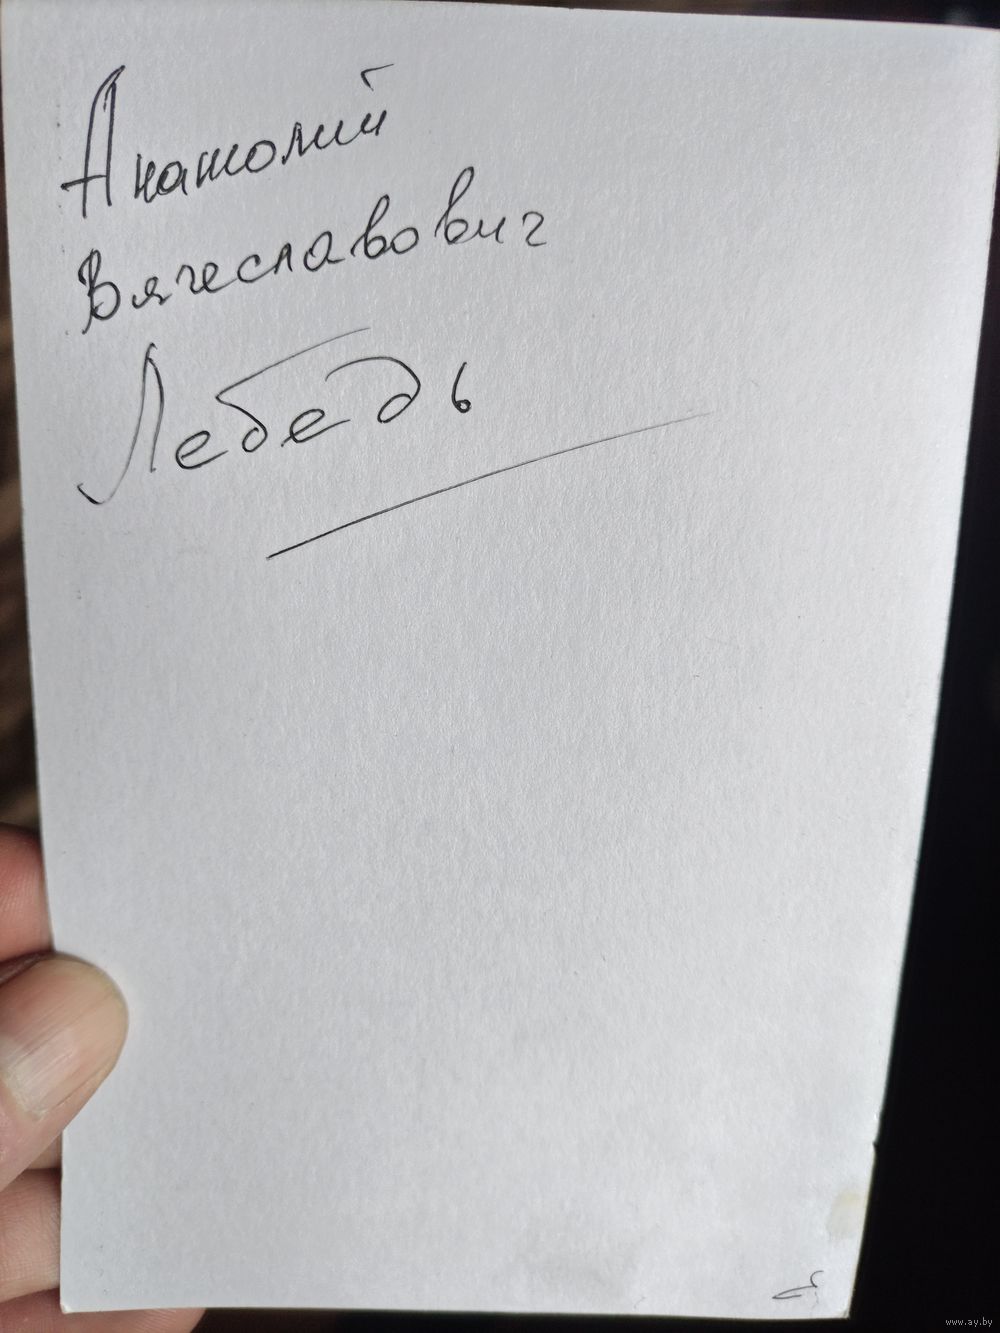 Анатолий
Вячеславович
Лебедь
www.ay.by